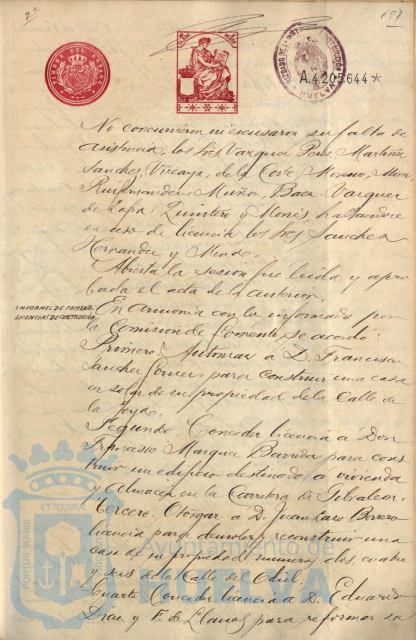 2º
157
TIMBRE DEL ESTADO
A.4.205.644*
HUELVA
No concurrieron ni excusaron su falta de
asistencia, los Sres Vazquez Perez, Martinez
Sanchez, Vizcaya, de la Corte, Moreno, Mora
Ruifernandez, Muñoz, Baca, Vazquez
de Zafra, Quintero y Monis, hallandose
en uso de licencia los Sres Sanchez
Hernandez y Mendez.
Abierta la sesion fue leida y apro
bada el acta de la anterior.
INFORMES DE FOMENTO.
LICENCIAS DE CONSTRUCCION
En armonia con lo informado por
la Comision de Fomento se acordó:
Primero. Autorizar a D. Francisco
Sanchez para construir una casa
en solar de su propiedad de la Calle de
la Joya.
Segundo. Conceder licencia á Don
Francisco Marquez Barrida para cons
truir un edificio destinado a vivienda
y almacen en la Carretera de Gibraleon.
Tercero. Otorgar á D. Juan Caro Borrero
licencia para demoler y reconstruir una
casa de su propiedad numero dos, cuatro
y seis de la Calle del Odiel.
Cuarto. Conceder licencia á D. Eduardo
Diaz y F. de Llanos para reformar su
PORTUS MARIS ET TERRÆ
Ayuntamiento de
HUELVA